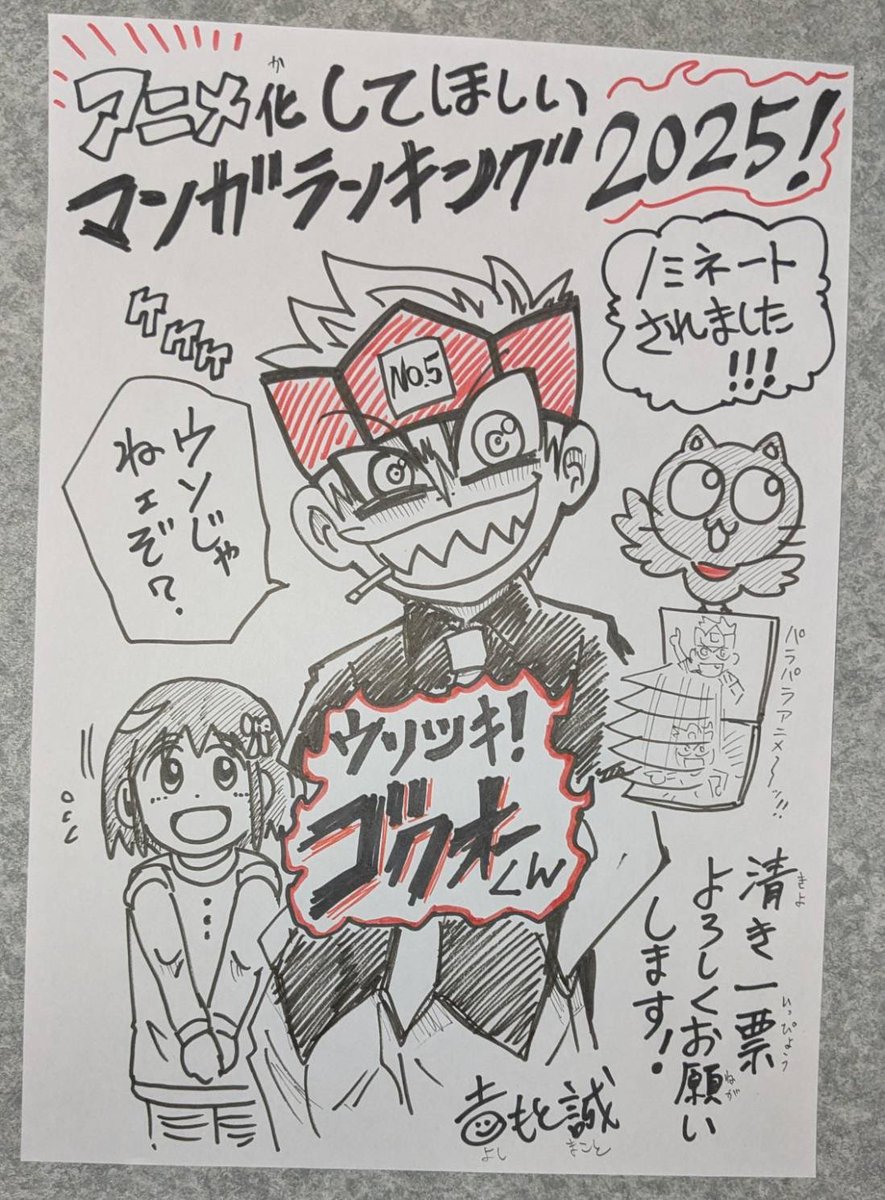 アニメ化してほしい
か
マンガランキング
2025!
ノミネート
されました
!!!
ケケケ
No.5
ウソじゃ
ねェぞ?
パラパラアニメ〜ッ!!
ウソツキ!
ゴクオーくん
清き一票
きよ
いっぴょう
よろしくお願い
ねが
します!
吉もと誠
よし
まこと